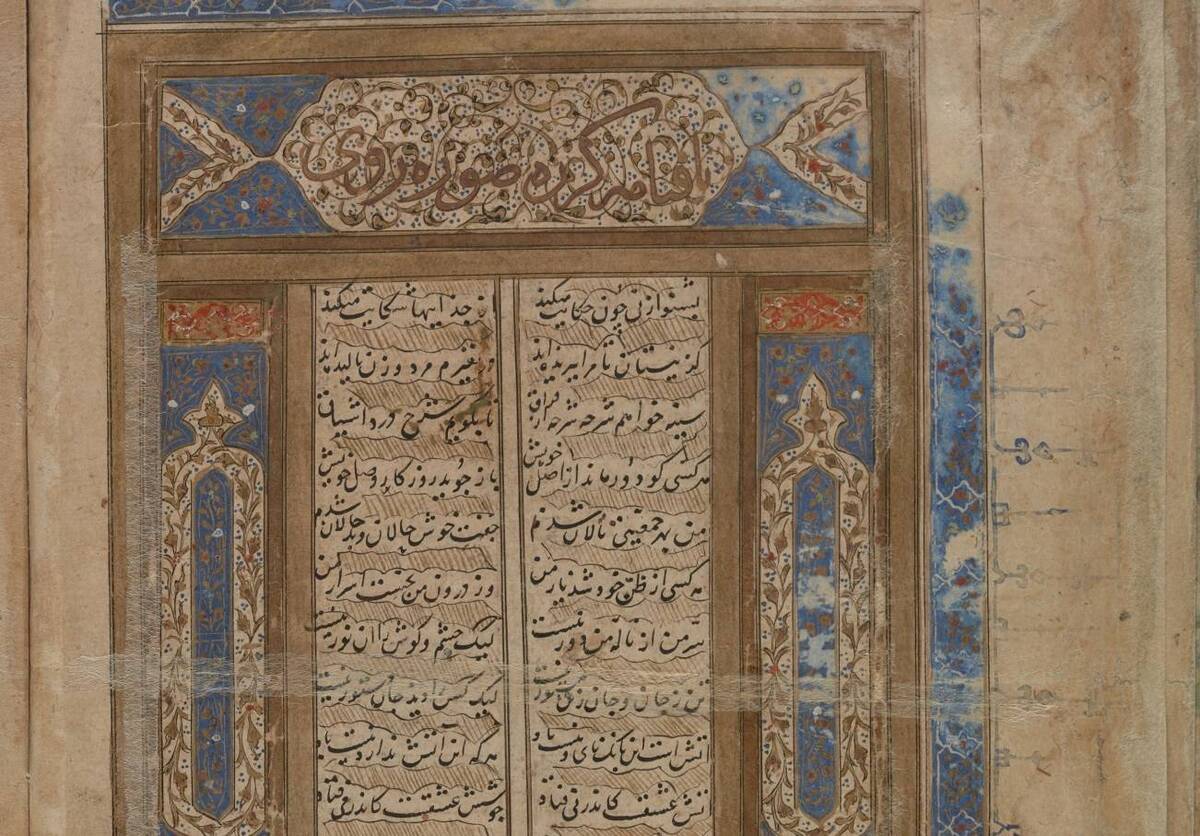 بشنو از نی چون حکایت میکند از جداییها شکایت میکند
کز نیستان تا مرا ببریده اند نفیرم مرد و زن نالیده اند
سینه خواهم شرحه شرحه از فراق تا بگویم شرح درد اشتیاق
هر کسی کو دور ماند از اصل خویش باز جوید روزگار وصل خویش
من بهر جمعیتی نالان شدم جفت خوش حالان و بدحالان شدم
هر کسی از ظن خود شد یار من وز درون من نجست اسرار من
سرّ من از ناله من دور نیست لیک چشم و گوش را آن نور نیست
تن ز جان و جان ز تن مستور نیست لیک کس را دید جان دستور نیست
آتش است این بانک نای و نیست باد هر که این آتش ندارد نیست باد
آتش عشقست کاندر نی فتاد جوشش عشقست کاندر می فتاد